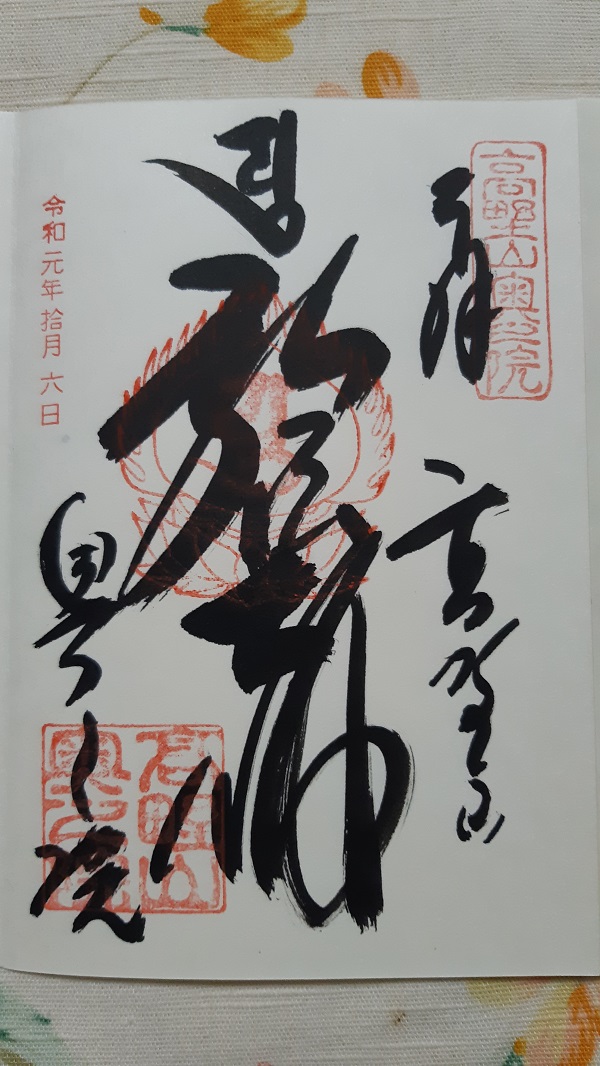 高野山奥之院
奉拝
高野山
奥之院
高野山
奥之院
令和元年拾月六日